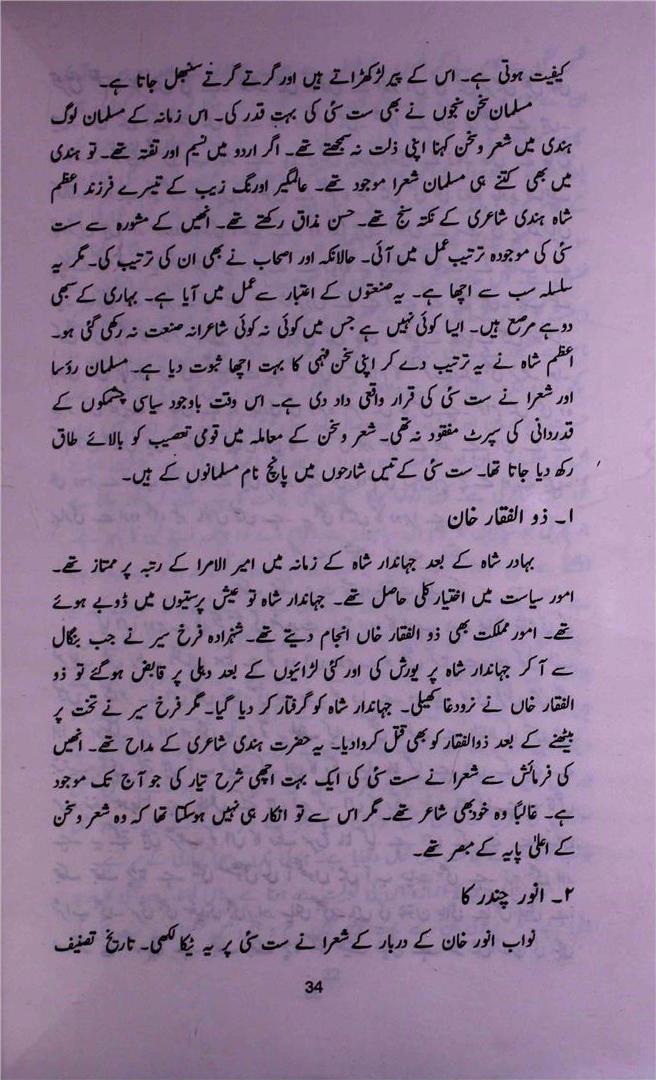 کیفیت ہوتی ہے۔ اس کے پیر لڑکھڑاتے ہیں اور گرتے گرتے سنبھل جاتا ہے۔
مسلمان سخن سنجوں نے بھی ست سئی کی بہت قدر کی۔ اس زمانہ کے مسلمان لوگ
ہندی میں شعر و سخن کہنا اپنی ذلت نہ سمجھتے تھے۔ اگر اردو میں نسیم اور تفتہ تھے۔ تو ہندی
میں بھی کتنے ہی مسلمان شعرا موجود تھے۔ عالمگیر اورنگ زیب کے تیسرے فرزند اعظم
شاہ ہندی شاعری کے نکتہ سنج تھے۔ حسن مذاق رکھتے تھے۔ انھیں کے مشورہ سے ست
سئی کی موجودہ ترتیب عمل میں آئی۔ حالانکہ اور اصحاب نے بھی ان کی ترتیب کی۔ مگر یہ
سلسلہ سب سے اچھا ہے۔ یہ صنعتوں کے اعتبار سے عمل میں آیا ہے۔ بہاری کے سبھی
دوہے مرصع ہیں۔ ایسا کوئی نہیں ہے جس میں کوئی نہ کوئی شاعرانہ صنعت نہ رکھی گئی ہو۔
اعظم شاہ نے یہ ترتیب دے کر اپنی سخن فہمی کا بہت اچھا ثبوت دیا ہے۔ مسلمان رؤسا
اور شعرا نے ست سئی کی قرار واقعی داد دی ہے۔ اس وقت باوجود سیاسی چشمکوں کے
قدردانی کی سپرٹ مفقود نہ تھی۔ شعر و سخن کے معاملہ میں قومی تعصب کو بالائے طاق
رکھ دیا جاتا تھا۔ ست سئی کے تیس شارحوں میں پانچ نام مسلمانوں کے ہیں۔
۱۔ ذو الفقار خان
بہادر شاہ کے بعد جہاندار شاہ کے زمانہ میں امیر الامرا کے رتبہ پر ممتاز تھے۔
امور سیاست میں اختیار کلی حاصل تھے۔ جہاندار شاہ تو عیش پرستیوں میں ڈوبے ہوئے
تھے۔ امور مملکت بھی ذو الفقار خاں انجام دیتے تھے۔ شہزادہ فرخ سیر نے جب بنگال
سے آ کر جہاندار شاہ پر یورش کی اور کئی لڑائیوں کے بعد دہلی پر قابض ہوگئے تو ذو
الفقار خاں نے نرد دغا کھیلی۔ جہاندار شاہ کو گرفتار کر دیا گیا۔ مگر فرخ سیر نے تخت پر
بیٹھنے کے بعد ذوالفقار کو بھی قتل کروا دیا۔ یہ حضرت ہندی شاعری کے مداح تھے۔ انھیں
کی فرمائش سے شعرا نے ست سئی کی ایک بہت اچھی شرح تیار کی جو آج تک موجود
ہے۔ غالباً وہ خود بھی شاعر تھے۔ مگر اس سے تو انکار ہی نہیں ہوسکتا تھا کہ وہ شعر و سخن
کے اعلیٰ پایہ کے مبصر تھے۔
۲۔ انور چندر کا
نواب انور خان کے دربار کے شعرا نے ست سئی پر یہ ٹیکا لکھی۔ تاریخ تصنیف
34